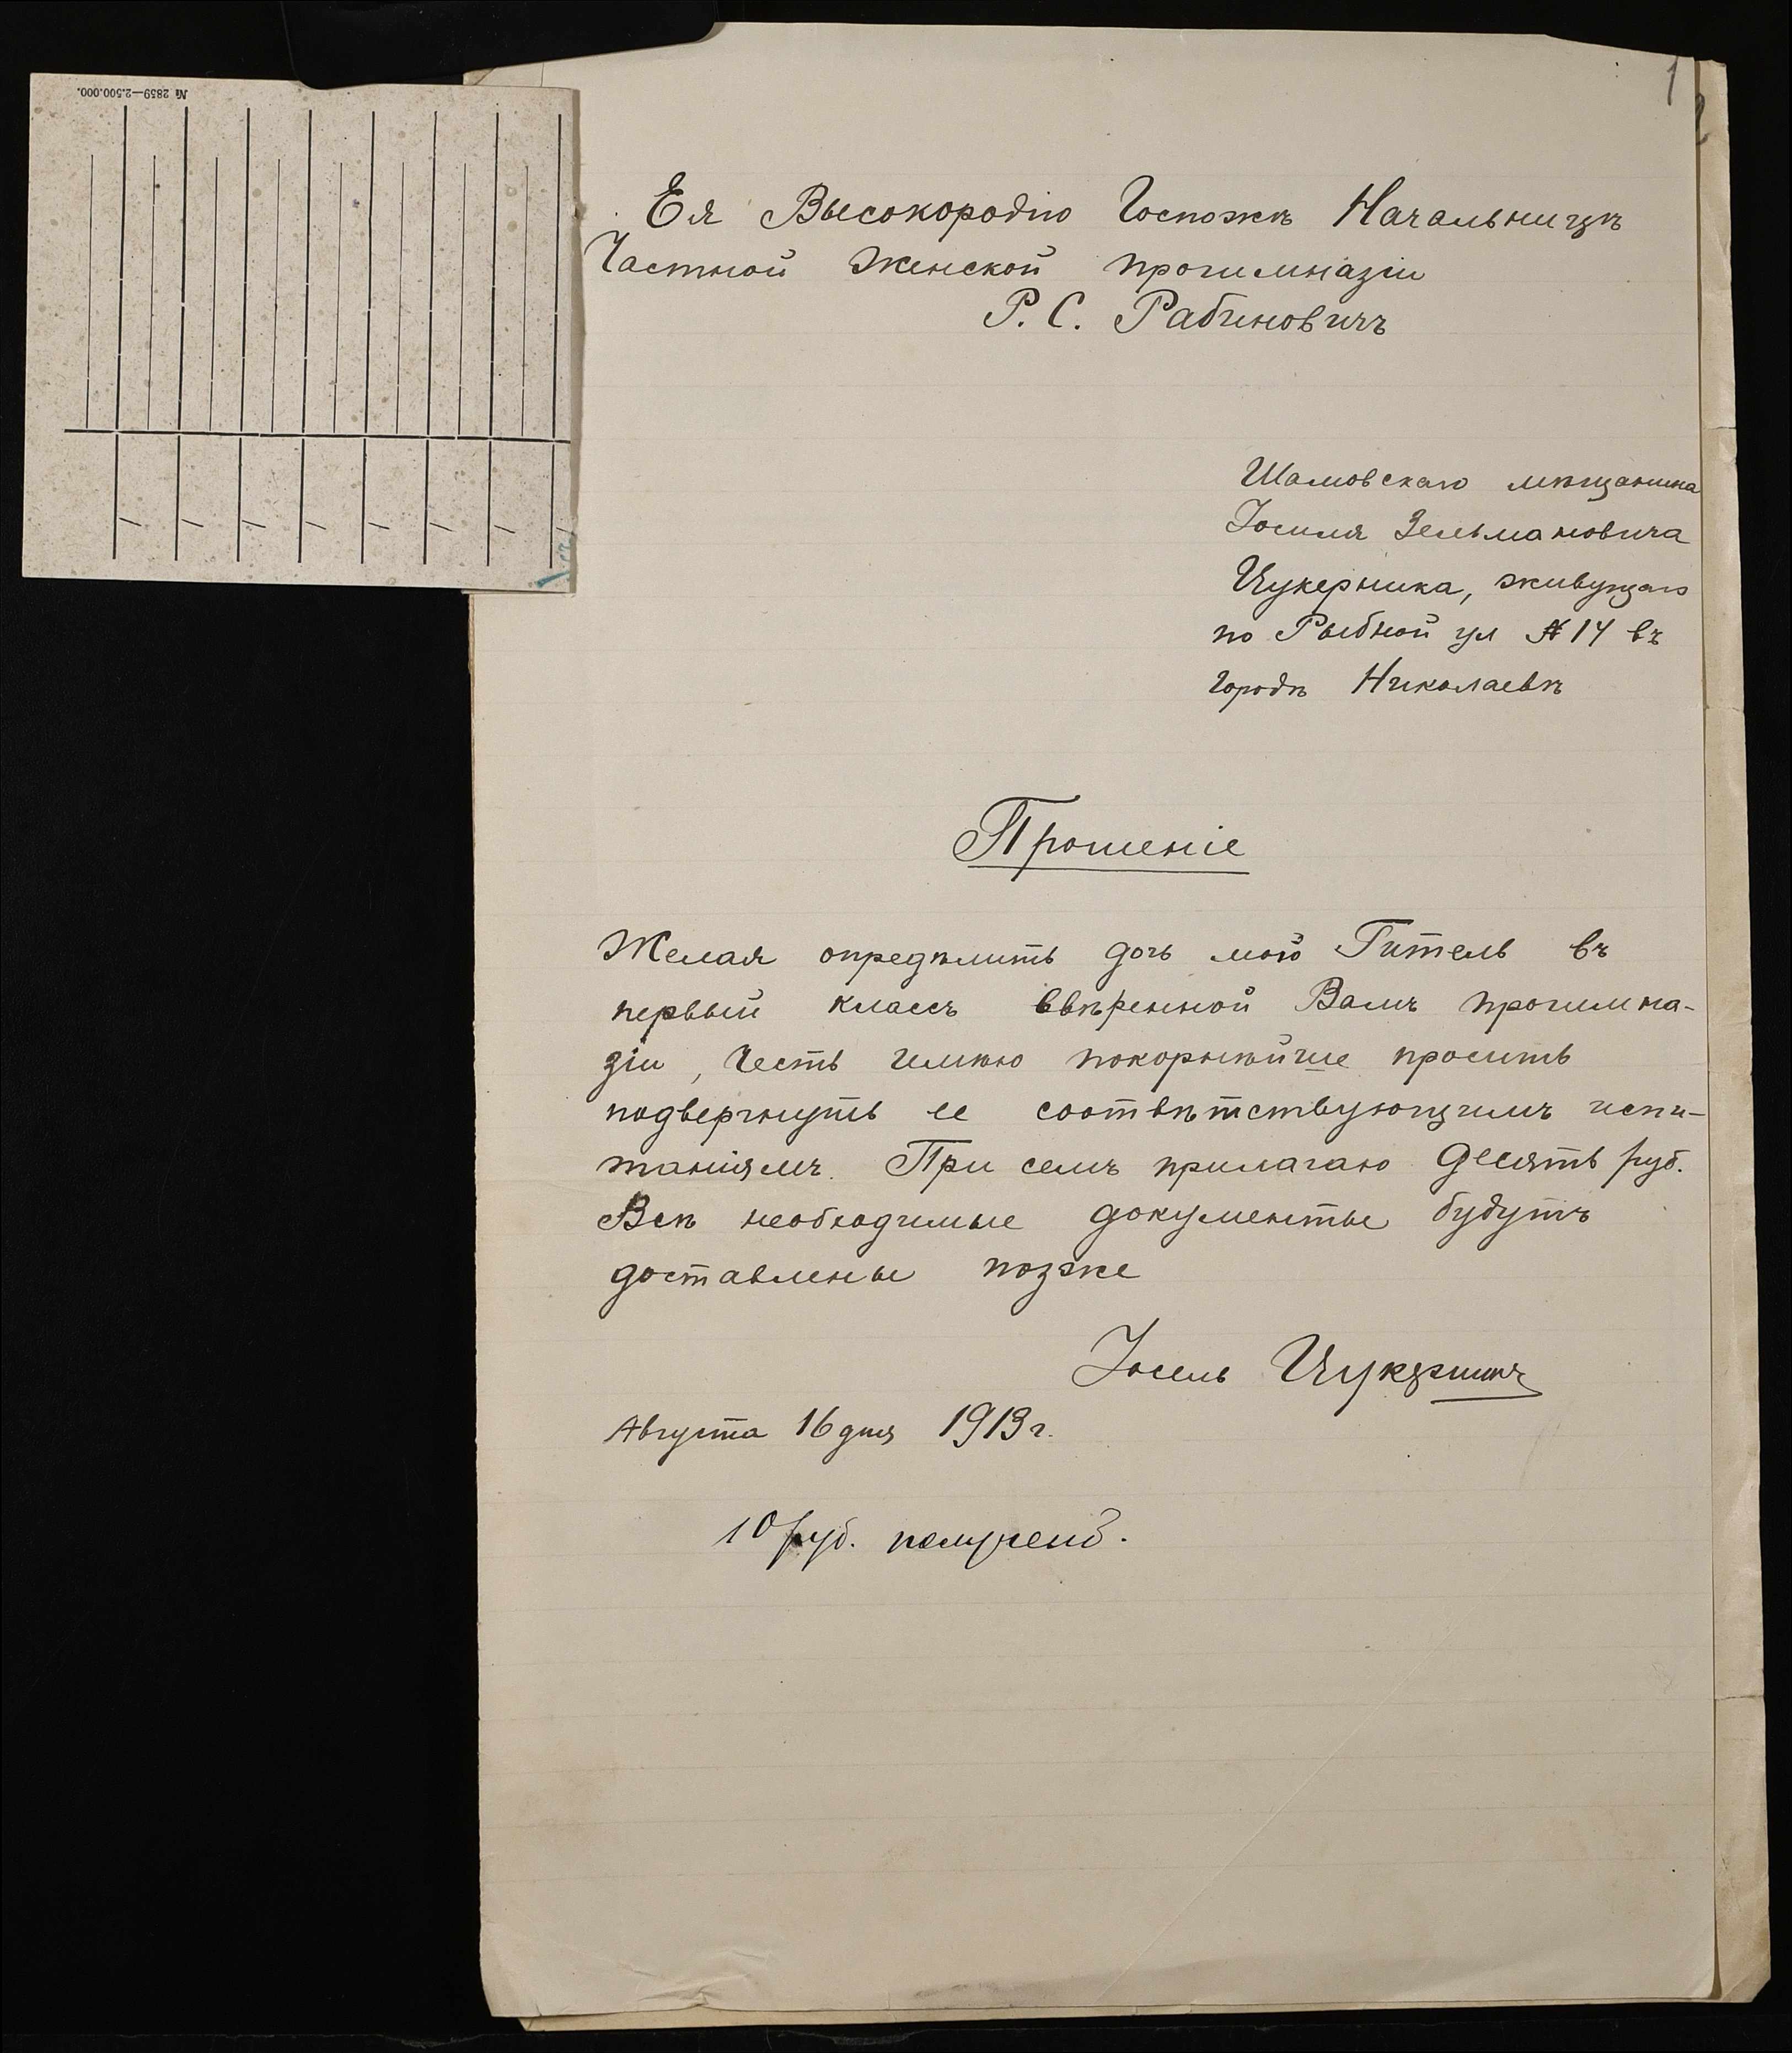 1
№ 2859—2.500.000.
Ея Высокородію Госпожѣ Начальницѣ
Частной Женской прогимназіи
Р. С. Рабиновичъ
Шамовскаго мѣщанина
Іосиля Зельмановича
Цукерника, живущаго
по Рыбной ул № 14 въ
городѣ Николаевѣ
Прошеніе
Желая опредѣлить дочь мою Гитель въ
первый классъ ввѣренной Вамъ прогимна-
зіи, Честь имѣю покорнѣйше просить
подвергнуть ее соотвѣтствующимъ испы-
таніямъ. При семъ прилагаю Десять руб.
Всѣ необходимые документы будутъ
доставлены позже
Іосель Цукерникъ
Августа 16 дня 1913 г.
10 руб. получено.